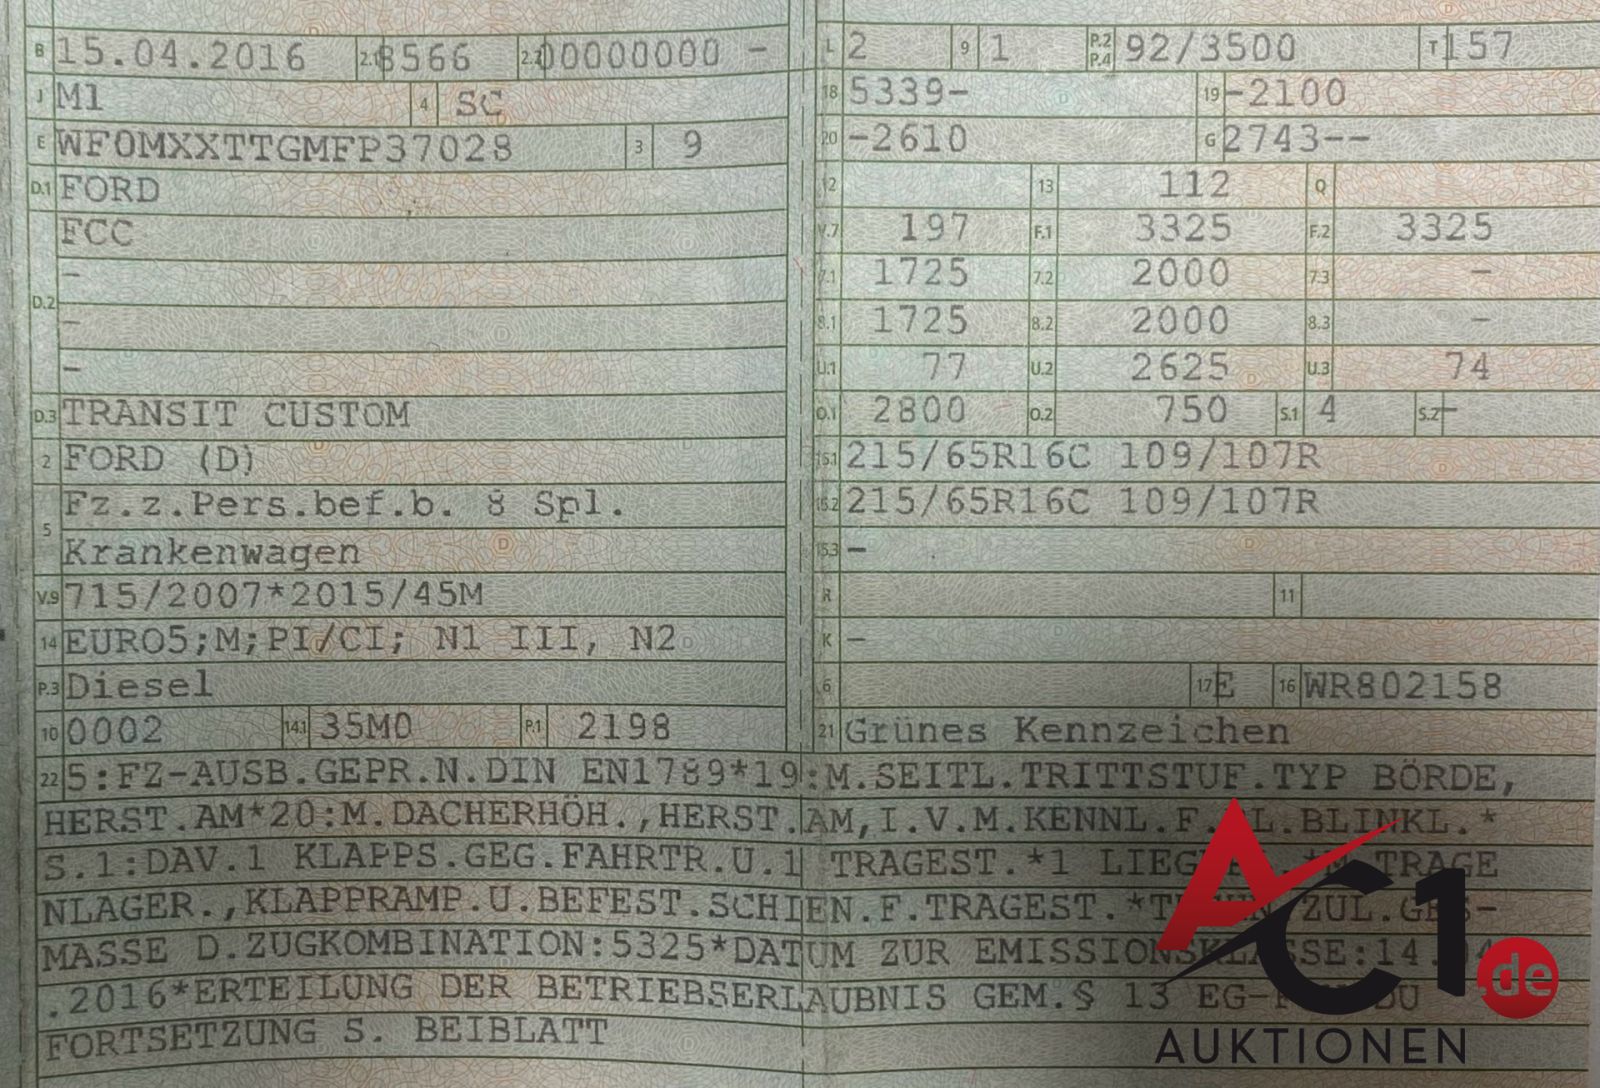 B 15.04.2016 2.1 8566 2.2 00000000 -
J M1 4 SC
E WF0MXXTTGMFP37028 3 9
D.1 FORD
FCC
-
D.2
-
-
D.3 TRANSIT CUSTOM
2 FORD (D)
Fz.z.Pers.bef.b. 8 Spl.
5
Krankenwagen
V.9 715/2007*2015/45M
14 EURO5;M;PI/CI; N1 III, N2
P.3 Diesel
10 0002 14.1 35M0 P.1 2198
L 2 9 1 P.2 P.4 92/3500 T 157
18 5339- 19 -2100
20 -2610 G 2743--
12 13 112 Q
V.7 197 F.1 3325 F.2 3325
7.1 1725 7.2 2000 7.3 -
8.1 1725 8.2 2000 8.3 -
U.1 77 U.2 2625 U.3 74
O.1 2800 O.2 750 S.1 4 S.2 -
15.1 215/65R16C 109/107R
15.2 215/65R16C 109/107R
15.3 -
R 11
K -
6 17 E 16 WR802158
21 Grünes Kennzeichen
22 5:FZ-AUSB.GEPR.N.DIN EN1789*19:M.SEITL.TRITTSTUF.TYP BÖRDE,
HERST.AM*20:M.DACHERHÖH.,HERST.AM,I.V.M.KENNL.F. BLINKL.*
S.1:DAV.1 KLAPPS.GEG.FAHRTR.U.1 TRAGEST.*1 TRAGE
NLAGER.,KLAPPRAMP.U.BEFEST.SCHIEN.F.TRAGEST.* ZUL.GES-
MASSE D.ZUGKOMBINATION:5325*DATUM ZUR EMISSIONSKLASSE:14.04
.2016*ERTEILUNG DER BETRIEBSERLAUBNIS GEM.§ 13
FORTSETZUNG S. BEIBLATT
AC1.de
AUKTIONEN